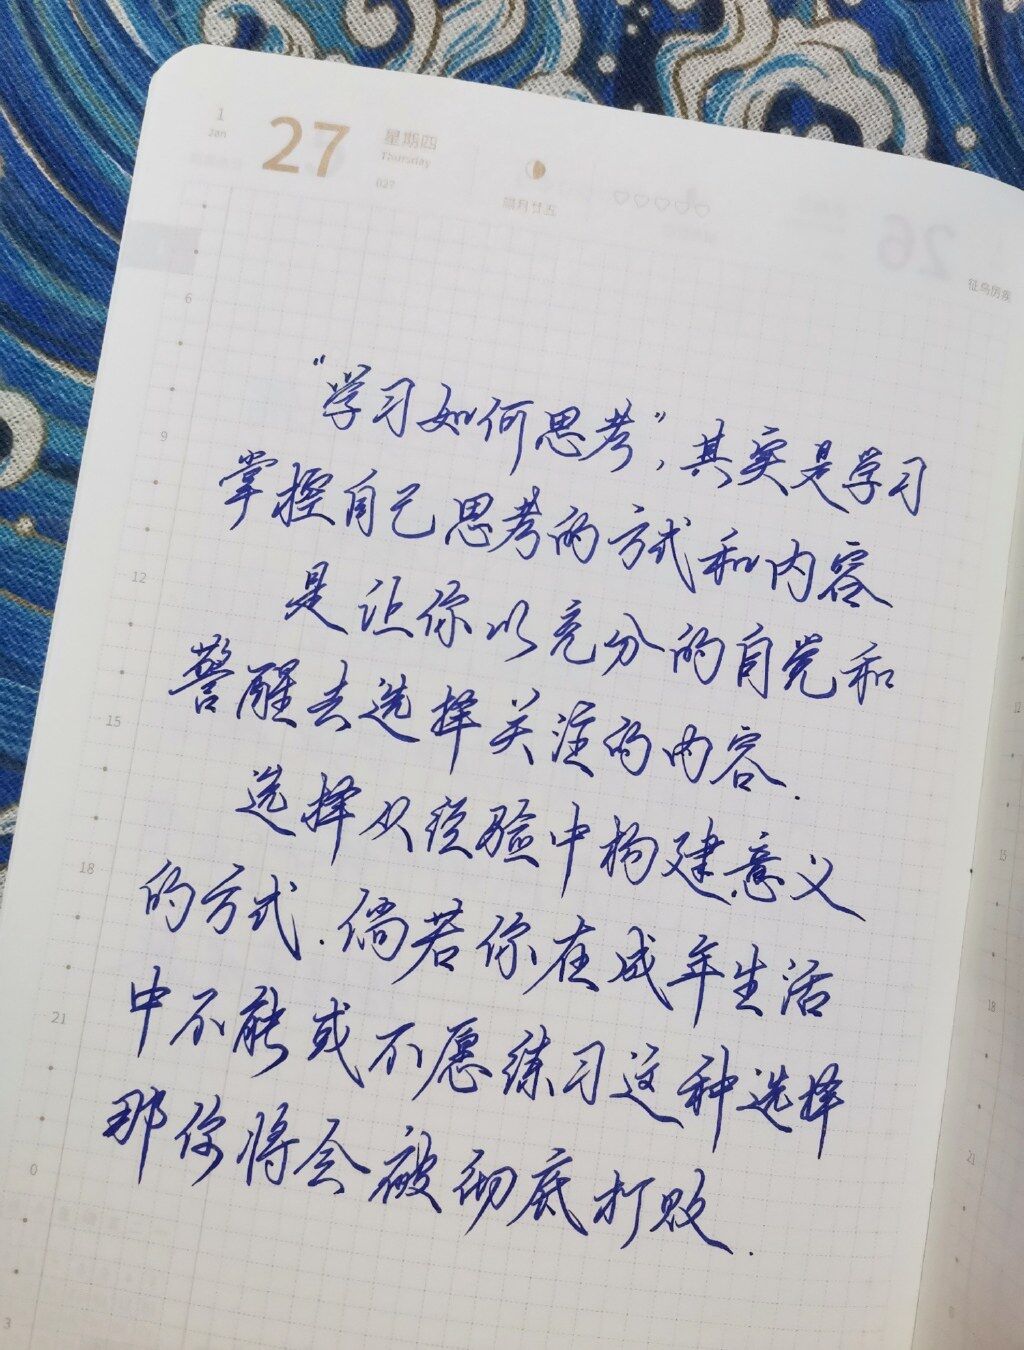 1
Jan
27
星期四
Thursday
027
腊月廿五
26
6
9
12
15
18
21
0
3
“学习如何思考”,其实是学习
掌控自己思考的方式和内容
是让你以充分的自觉和
警醒去选择关注的内容.
选择从经验中构建意义
的方式.倘若你在成年生活
中不能或不愿练习这种选择
那你将会被彻底打败.
12
15
18
21
0